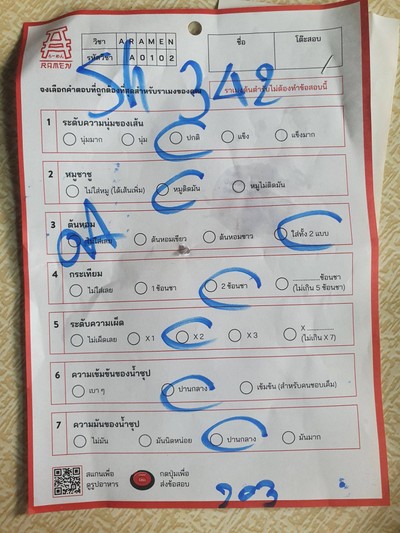 ラーメン
RAMEN
วิชา A R A M E N
รหัสวิชา A 0 1 0 2
ชื่อ
โต๊ะสอบ
Sh 342
จงเลือกคำตอบที่ถูกต้องที่สุดสำหรับราเมงของคุณ
1 ระดับความนุ่มของเส้น
นุ่มมาก นุ่ม ปกติ แข็ง แข็งมาก
2 หมูชาชู
ไม่ใส่หมู (ได้เส้นเพิ่ม) หมูติดมัน หมูไม่ติดมัน
3 ต้นหอม
ไม่ใส่เลย ต้นหอมเขียว ต้นหอมขาว ใส่ทั้ง 2 แบบ
4 กระเทียม
ไม่ใส่เลย 1 ช้อนชา 2 ช้อนชา ............ช้อนชา
(ไม่เกิน 5 ช้อนชา)
5 ระดับความเผ็ด
ไม่เผ็ดเลย X 1 X 2 X 3 X ............
(ไม่เกิน X 7)
6 ความเข้มข้นของน้ำซุป
เบา ๆ ปานกลาง เข้มข้น (สำหรับคนชอบเค็ม)
7 ความมันของน้ำซุป
ไม่มัน มันนิดหน่อย ปานกลาง มันมาก
สแกนเพื่อ
ดูรูปอาหาร
กดปุ่มเพื่อ
ส่งข้อสอบ